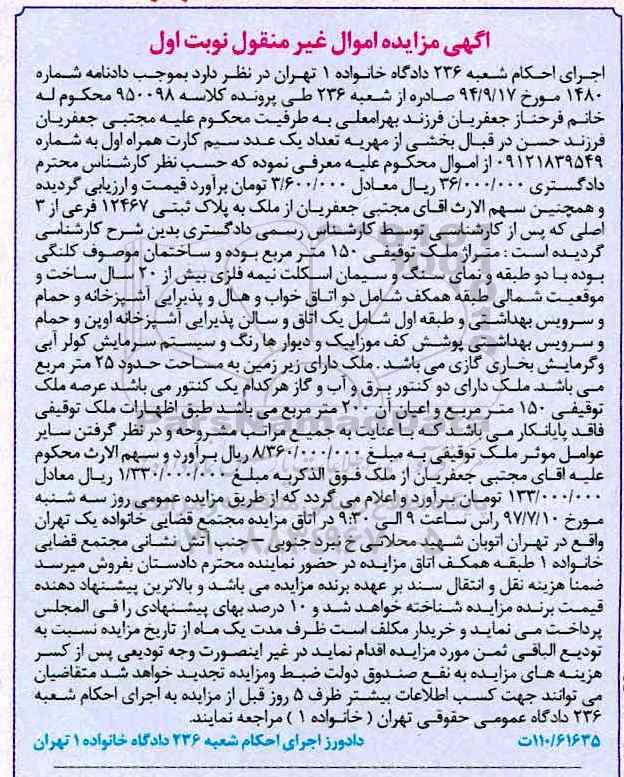 آگهی مزایده اموال غیر منقول نوبت اول
اجرای احکام شعبه ۲۳۶ دادگاه خانواده ۱ تهران در نظر دارد بموجب دادنامه شماره
۱۴۸۰ مورخ ۹۴/۹/۱۷ صادره از شعبه ۲۳۶ طی پرونده کلاسه ۹۵۰۰۹۸ محکوم له
خانم فرحناز جعفریان فرزند بهرامعلی به طرفیت محکوم علیه مجتبی جعفریان
فرزند حسن در قبال بخشی از مهریه تعداد یک عدد سیم کارت همراه اول به شماره
۰۹۱۲۱۸۳۹۵۴۹ از اموال محکوم علیه معرفی نموده که حسب نظر کارشناس محترم
دادگستری ۳۶/۰۰۰/۰۰۰ ریال معادل ۳/۶۰۰/۰۰۰ تومان برآورد قیمت و ارزیابی گردیده
و همچنین سهم الارث اقای مجتبی جعفریان از ملک به پلاک ثبتی ۱۲۴۶۷ فرعی از ۳
اصلی که پس از کارشناسی توسط کارشناس رسمی دادگستری بدین شرح کارشناسی
گردیده است : متراژ ملک توقیفی ۱۵۰ متر مربع بوده و ساختمان موصوف کلنگی
بوده با دو طبقه و نمای سنگ و سیمان اسکلت نیمه فلزی بیش از ۲۰ سال ساخت و
موقعیت شمالی طبقه همکف شامل دو اتاق خواب و هال و پذیرایی آشپزخانه و حمام
و سرویس بهداشتی و طبقه اول شامل یک اتاق و سالن پذیرایی آشپزخانه اوپن و حمام
و سرویس بهداشتی پوشش کف موزاییک و دیوار ها رنگ و سیستم سرمایش کولر آبی
وگرمایش بخاری گازی می باشد . ملک دارای زیر زمین به مساحت حدود ۲۵ متر مربع
می باشد. ملک دارای دو کنتور برق و آب و گاز هرکدام یک کنتور می باشد عرصه ملک
توقیفی ۱۵۰ متر مربع و اعیان آن ۲۰۰ متر مربع می باشد طبق اظهارات ملک توقیفی
فاقد پایانکار می باشد که با عنایت به جمیع مراتب مشروحه و در نظر گرفتن سایر
عوامل موثر ملک توقیفی به مبلغ ۸/۳۶۰/۰۰۰/۰۰۰ ریال برآورد و سهم الارث محکوم
علیه اقای مجتبی جعفریان از ملک فوق الذکربه مبلغ ۱/۳۳۰/۰۰۰/۰۰۰ ریال معادل
۱۳۳/۰۰۰/۰۰۰ تومان برآورد و اعلام می گردد که از طریق مزایده عمومی روز سه شنبه
مورخ ۹۷/۷/۱۰ راس ساعت ۹ الی ۹:۳۰ در اتاق مزایده مجتمع قضایی خانواده یک تهران
واقع در تهران اتوبان شهید محلاتی خ نبرد جنوبی – جنب آتش نشانی مجتمع قضایی
خانواده ۱ طبقه همکف اتاق مزایده در حضور نماینده محترم دادستان بفروش میرسد
ضمنا هزینه نقل و انتقال سند بر عهده برنده مزایده می باشد و بالاترین پیشنهاد دهنده
قیمت برنده مزایده شناخته خواهد شد و ۱۰ درصد بهای پیشنهادی را فی المجلس
پرداخت می نماید و خریدار مکلف است ظرف مدت یک ماه از تاریخ مزایده نسبت به
تودیع الباقی ثمن مورد مزایده اقدام نماید در غیر اینصورت وجه تودیعی پس از کسر
هزینه های مزایده به نفع صندوق دولت ضبط ومزایده تجدید خواهد شد متقاضیان
می توانند جهت کسب اطلاعات بیشتر ظرف ۵ روز قبل از مزایده به اجرای احکام شعبه
۲۳۶ دادگاه عمومی حقوقی تهران ( خانواده ۱ ) مراجعه نمایند.
۱۱۰/۶۱۶۳۵ت
دادورز اجرای احکام شعبه ۲۳۶ دادگاه خانواده ۱ تهران